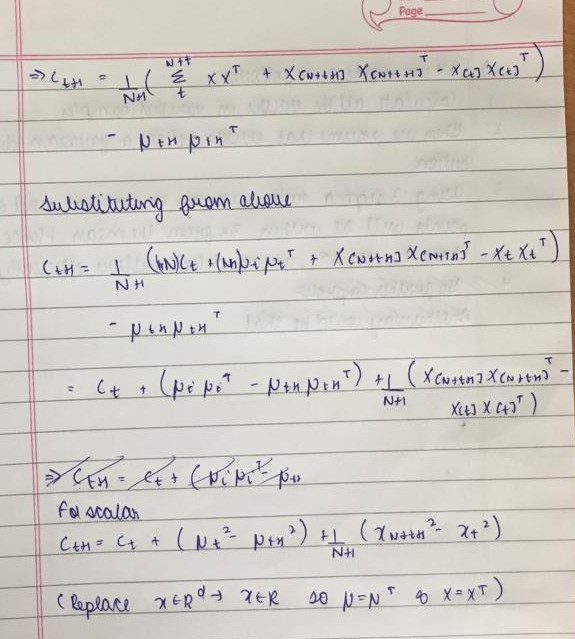 Page
⇒ C_{t+1} = 1/(N+1) ( Σ_{t}^{N+t} XX^T + X[N+t+1] X[N+t+1]^T - X[t] X[t]^T )
- μ_{t+1} μ_{t+1}^T
Substituting from above
C_{t+1} = 1/(N+1) ((1+N)C_t + (N+1)μ_t μ_t^T + X[N+t+1] X[N+t+1]^T - X_t X_t^T)
- μ_{t+1} μ_{t+1}^T
= C_t + (μ_t μ_t^T - μ_{t+1} μ_{t+1}^T) + 1/(N+1) (X[N+t+1] X[N+t+1]^T -
X[t] X[t]^T)
⇒ C_{t+1} = C_t + (μ_t μ_t^T - μ_{t+1}
For scalar
C_{t+1} = C_t + (μ_t^2 - μ_{t+1}^2) + 1/(N+1) (x_{N+t+1}^2 - x_t^2)
(Replace x∈R^d → x∈R so μ=μ^T & X=X^T)